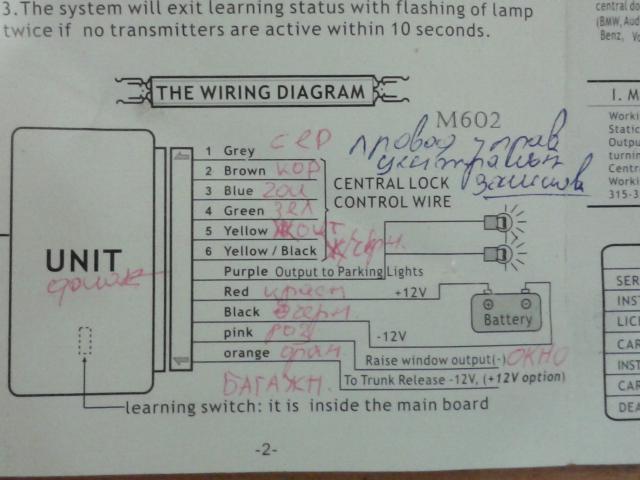 3.The system will exit learning status with flashing of lamp
twice if no transmitters are active within 10 seconds.
THE WIRING DIAGRAM
M602
1 Grey сер
2 Brown кор
3 Blue гол
4 Green зел
5 Yellow жолт
6 Yellow / Black ж/черн.
CENTRAL LOCK
CONTROL WIRE
провод управ
замков
Purple Output to Parking Lights
Red красн +12V
Black черн.
-12V
pink роз
Raise window output(-) ОКНО
orange оран
БАГАЖН. To Trunk Release -12V, (+12V option)
UNIT
Battery
learning switch: it is inside the main board
-2-
central do
(BMW, Aud
Benz, Vo
I. M
Worki
Static
Outpu
turnin
Centr
Worki
315-3
SER
INST
LICE
CAR
INST
CAR
DEA